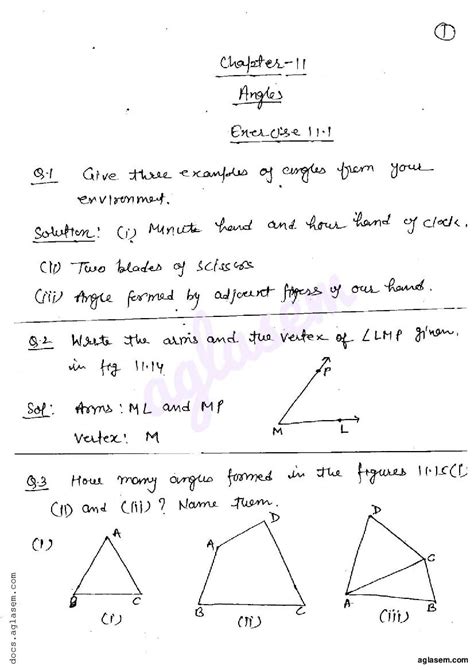 1
Chapter-11
Angles
Exercise 11.1
Q.1 Give three examples of angles from your
environment.
Solution: (i) Minute hand and hour hand of clock.
(ii) Two blades of scissors
(iii) Angle formed by adjacent figers of our hand.
Q.2 Write the arms and the vertex of ∠LMP given.
in fig 11.14
Sol: Arms: ML and MP
Vertex: M
P
M
L
Q.3 How many angles formed in the figures 11.15(i)
(ii) and (iii)? Name them.
(i)
A
B
C
(i)
A
D
B
C
(ii)
D
C
A
B
(iii)
aglasem
docs.aglasem.com
aglasem.com